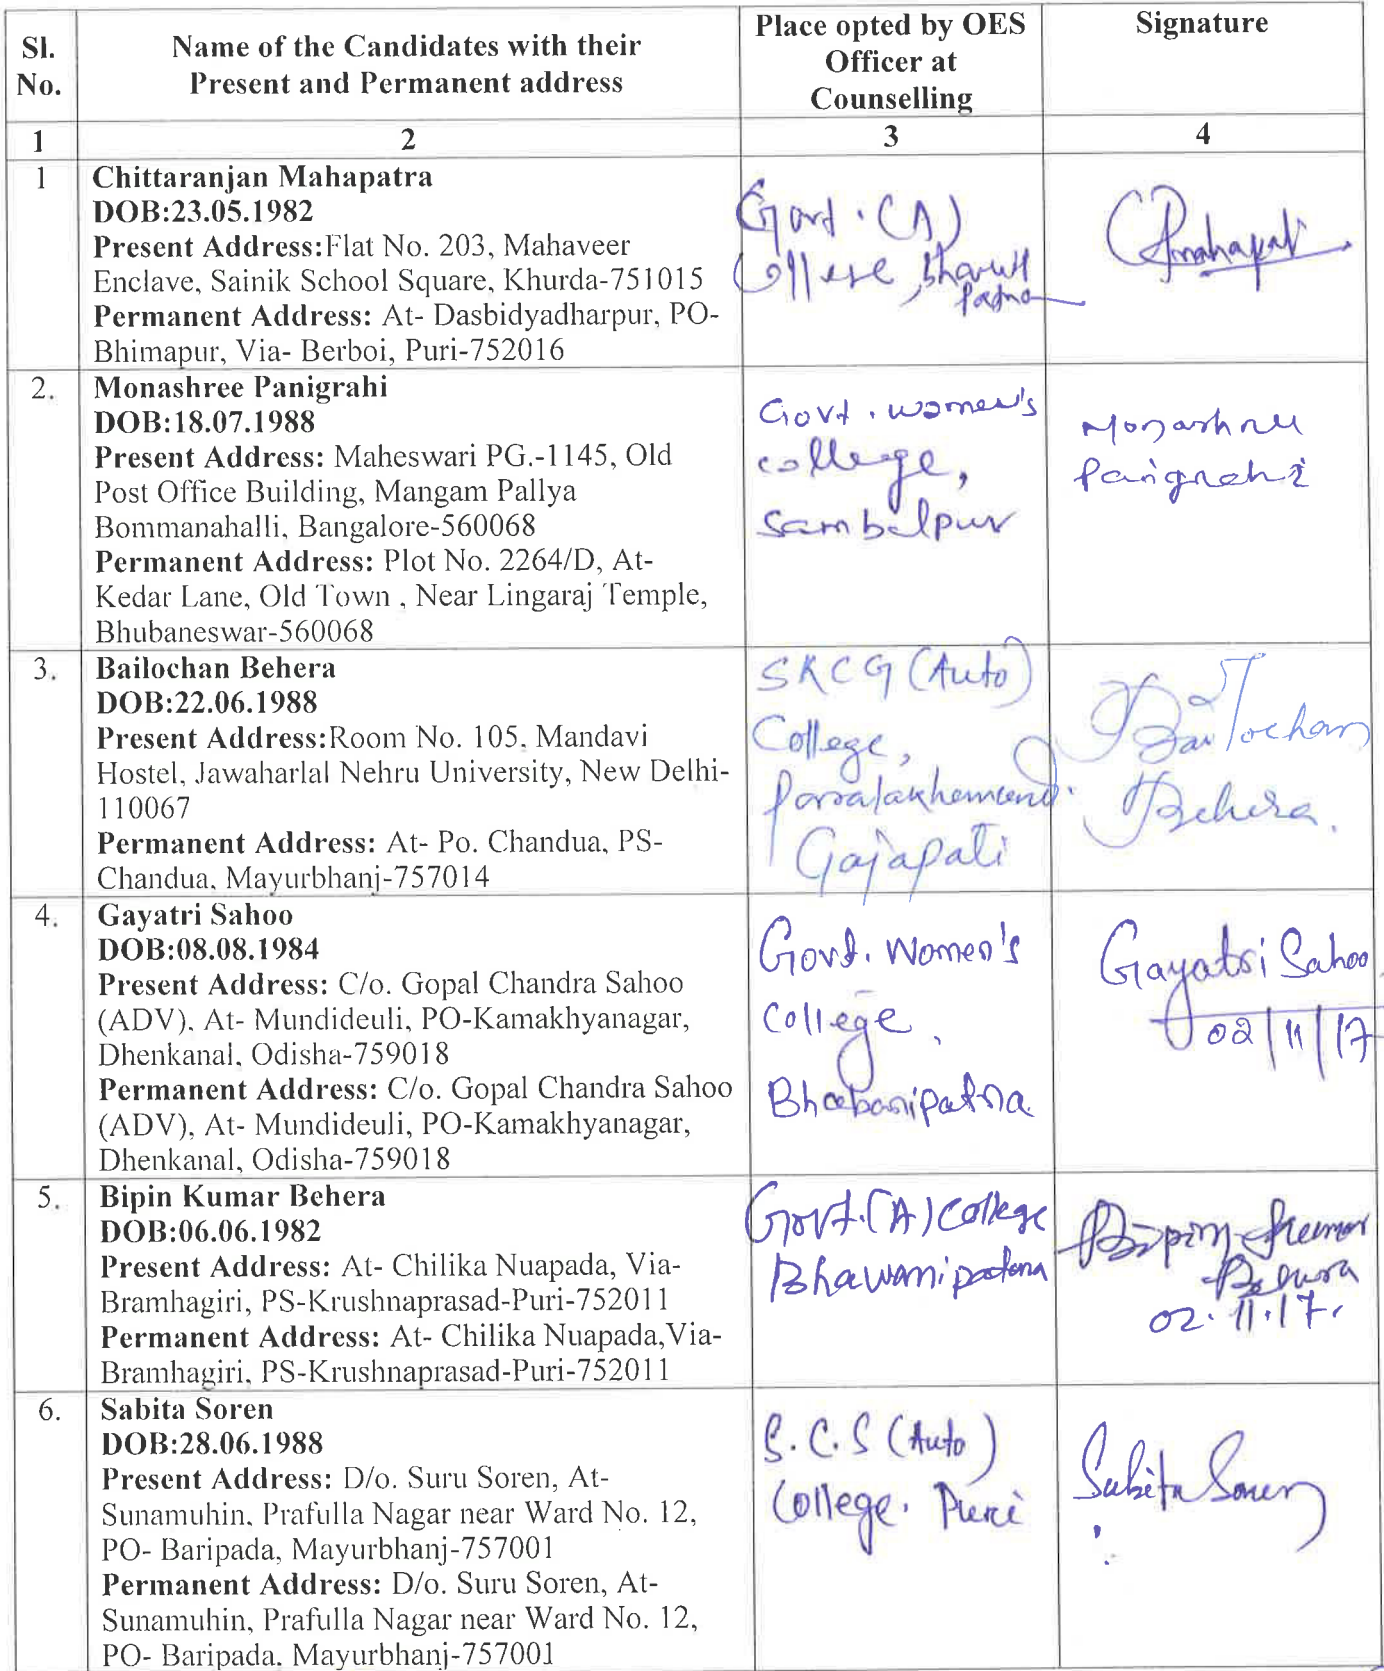 Sl. No.
Name of the Candidates with their Present and Permanent address
Place opted by OES Officer at Counselling
Signature
1
2
3
4
1
Chittaranjan Mahapatra
DOB:23.05.1982
Present Address:Flat No. 203, Mahaveer
Enclave, Sainik School Square, Khurda-751015
Permanent Address: At- Dasbidyadharpur, PO-
Bhimapur, Via- Berboi, Puri-752016
Govt. (A)
College, Bhawani
patna
2.
Monashree Panigrahi
DOB:18.07.1988
Present Address: Maheswari PG.-1145, Old
Post Office Building, Mangam Pallya
Bommanahalli, Bangalore-560068
Permanent Address: Plot No. 2264/D, At-
Kedar Lane, Old Town , Near Lingaraj Temple,
Bhubaneswar-560068
Govt. women's
college,
Sambalpur
Monashree
Panigrahi
3.
Bailochan Behera
DOB:22.06.1988
Present Address:Room No. 105, Mandavi
Hostel, Jawaharlal Nehru University, New Delhi-
110067
Permanent Address: At- Po. Chandua, PS-
Chandua, Mayurbhanj-757014
SKCG (Auto)
College,
Paralakhemundi.
Gajapati
Bailochan
Behera.
4.
Gayatri Sahoo
DOB:08.08.1984
Present Address: C/o. Gopal Chandra Sahoo
(ADV), At- Mundideuli, PO-Kamakhyanagar,
Dhenkanal, Odisha-759018
Permanent Address: C/o. Gopal Chandra Sahoo
(ADV), At- Mundideuli, PO-Kamakhyanagar,
Dhenkanal, Odisha-759018
Govt. Women's
College,
Bhabanipatna.
Gayatri Sahoo
02/11/17
5.
Bipin Kumar Behera
DOB:06.06.1982
Present Address: At- Chilika Nuapada, Via-
Bramhagiri, PS-Krushnaprasad-Puri-752011
Permanent Address: At- Chilika Nuapada,Via-
Bramhagiri, PS-Krushnaprasad-Puri-752011
Govt.(A) College
Bhawanipatna
Bipin Kumar
Behera
02.11.17.
6.
Sabita Soren
DOB:28.06.1988
Present Address: D/o. Suru Soren, At-
Sunamuhin, Prafulla Nagar near Ward No. 12,
PO- Baripada, Mayurbhanj-757001
Permanent Address: D/o. Suru Soren, At-
Sunamuhin, Prafulla Nagar near Ward No. 12,
PO- Baripada, Mayurbhanj-757001
S.C.S (Auto)
College. Puri
Sabita Soren